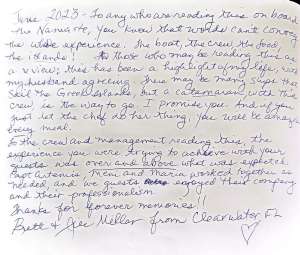 June 2023 - To any who are reading this on board
the Namaste, you know that words can't convey
the whole experience. The boat, the crew, the food,
the islands! To those who may be reading this as
a view, this has been a highlight of my life, and
my husband agrees. There may be many ways to
see the Greek Islands, but a catamaran with this
crew, is the way to go. I promise you. And if you
just let the chef do her thing, you will be amazed
every meal.
To the crew and management reading this, the
experience you were trying to achieve with your
guests was over and above what was expected.
Capt Artemis, Memi and Maria worked together as
needed, and we guests enjoyed their company
and their professionalism.
Thanks for forever memories!!
Brett & Miller from Clearwater FL